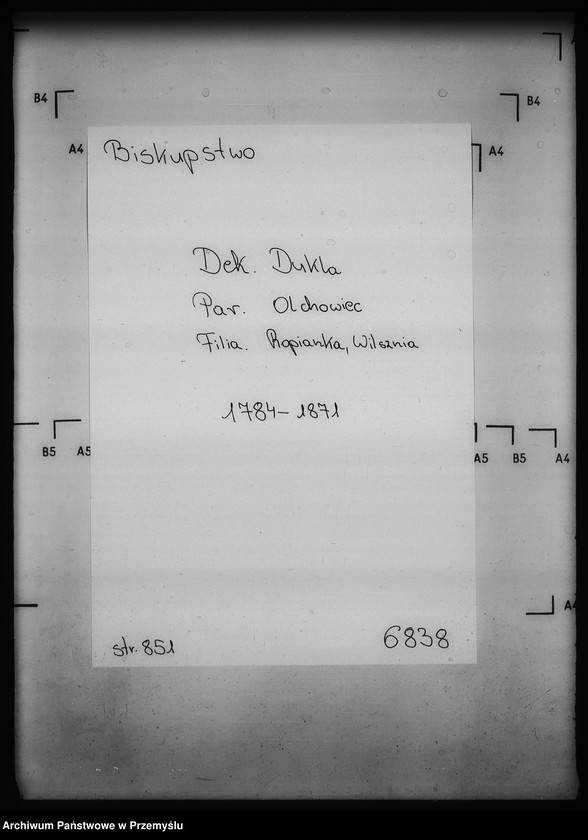 B4
B4
A4
A4
Biskupstwo
Dek. Dukla
Par. Olchowiec
Filia. Ropianka, Wilsznia
1784-1871
B5 A5
A5 B5 A4
A4
str. 851
6838
Archiwum Państwowe w Przemyślu